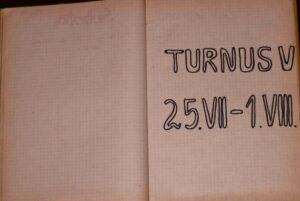 TURNUS V
25.VII-1.VIII.